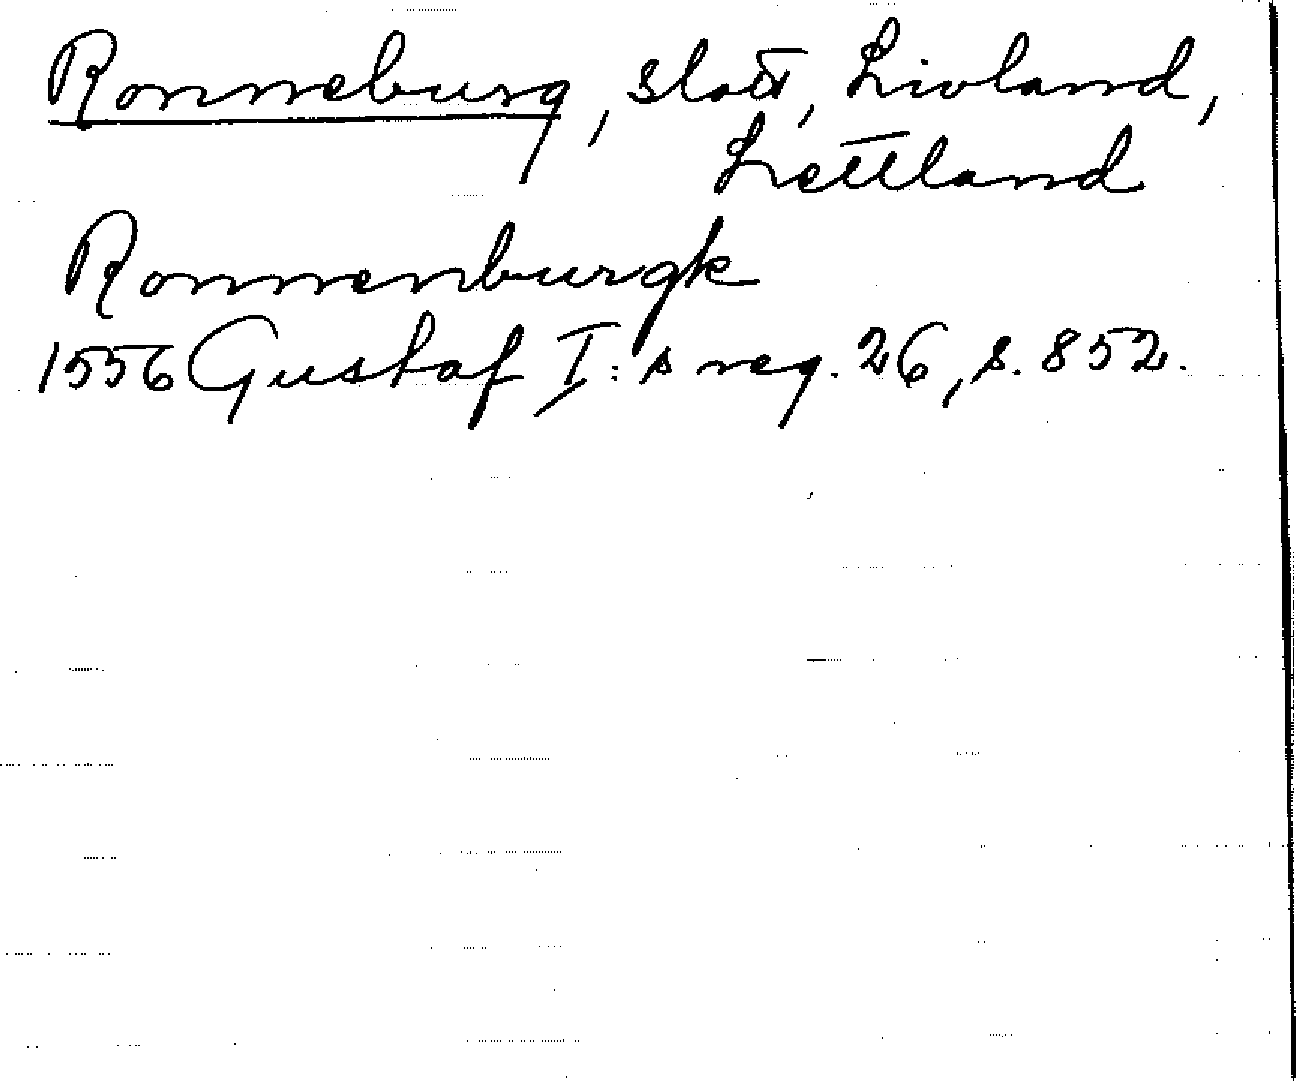 Ronneburg, slott, Livland,
Lettland
Ronnenburgk
1556 Gustaf I:s reg. 26, s. 852.